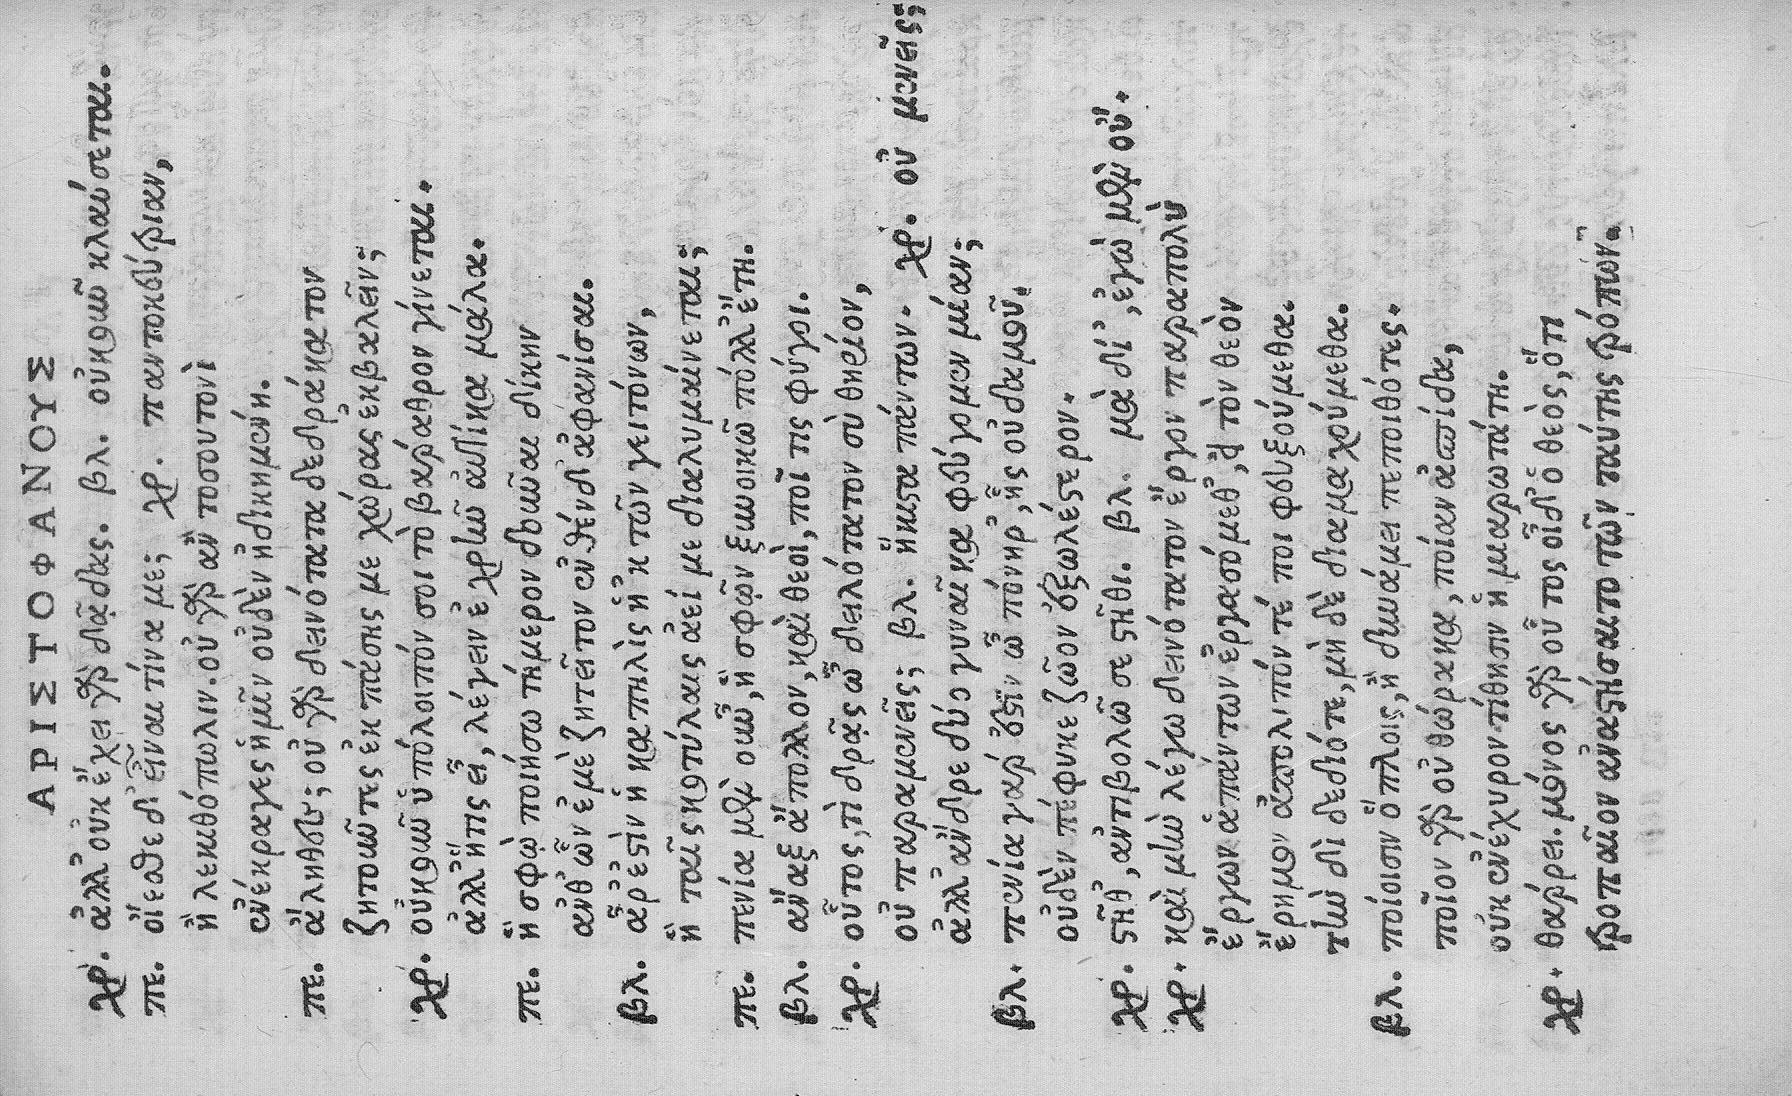 ΑΡΙΣΤΟΦΑΝΟΥΣ
χρ. ἀλλ' οὐκ ἔχει γὰρ δᾷδας. βλ. οὐκοῦν κλαύσεται.
πε. οἴεσθε δ' εἶναι τίνα με; χρ. πανδοκεύτριαν,
ἢ λεκιθόπωλιν. οὐ γὰρ ἂν τοσουτονὶ
ἐνέκραγες ἡμῖν οὐδὲν ἠδικημένη.
πε. ἄληθες; οὐ γὰρ δεινότατα δεδράκατον
ζητοῦντες ἐκ πάσης με χώρας ἐκβαλεῖν;
χρ. οὔκουν ὑπόλοιπόν σοι τὸ βάραθρον γίνεται.
ἀλλ' ἥτις εἶ, λέγειν ἐχρῆν αὐτίκα μάλα.
πε. ἣ σφὼ ποιήσω τήμερον δοῦναι δίκην
ἀνθ' ὧν ἐμὲ ζητεῖτον ἐνθένδ' ἀφανίσαι.
βλ. ἆρ' ἐστὶν ἡ καπηλὶς ἡ 'κ τῶν γειτόνων,
ἣ ταῖς κοτύλαις ἀεί με διαλυμαίνεται;
πε. πενία μὲν οὖν, ἣ σφῷν ξυνοικῶ πόλλ' ἔτη.
βλ. ἄναξ ἄπολλον, καὶ θεοὶ, ποῖ τις φύγοι.
χρ. οὗτος, τί δρᾷς ὦ δειλότατον σὺ θηρίον,
οὐ παραμενεῖς; βλ. ἥκιστα πάντων. χρ. οὐ μενεῖς;
ἀλλ' ἄνδρε δύο γυναῖκα φεύγομεν μίαν;
βλ. πενία γάρ ἐστιν ὦ πόνηρ', ἧς οὐδαμοῦ.
οὐδὲν πέφυκε ζῶον ἐξωλέστερον.
χρ. στῆθ', ἀντιβολῶ σε στῆθι. βλ. μὰ δί', ἐγὼ μὲν οὔ.
χρ. καὶ μὴν λέγω δεινότατον ἔργον παραπολὺ
ἔργων ἁπάντων ἐργασόμεθ', εἰ τὸν θεὸν
ἔρημον ἀπολιπόντέ ποι φευξούμεθα.
τηνδὶ δεδιότε, μὴ δὲ διαμαχούμεθα.
βλ. ποίοισιν ὅπλοις, ἢ δυνάμει πεποιθότες.
ποῖον γὰρ οὐ θώρακα, ποίαν ἀσπίδα,
οὐκ ἐνέχυρον τίθησιν ἡ μιαρωτάτη.
χρ. θάρρει. μόνος γὰρ οὗτος οἶδ' ὁ θεὸς, ὅτι
τροπαῖον ἀναστήσαιτο τῶν ταύτης τρόπων.